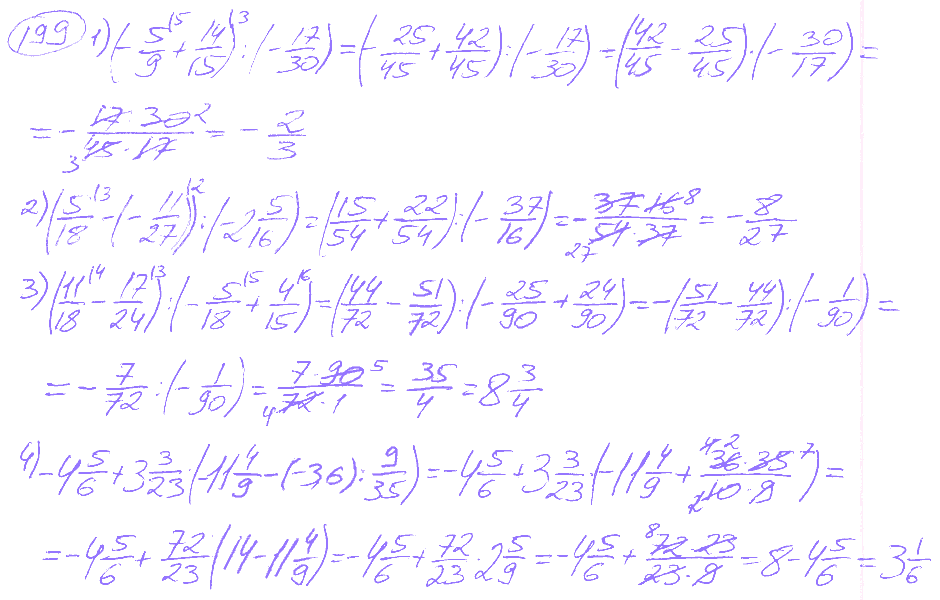 199 1) (-5/9 + 14/15) : (-17/30) = (-25/45 + 42/45) : (-17/30) = (42/45 - 25/45) · (-30/17) =
= - 17·30/45·17 = - 2/3
2) (5/18 - (-11/27)) : (-2 5/16) = (15/54 + 22/54) : (-37/16) = - 37·16/54·37 = - 8/27
3) (11/18 - 17/24) : (-5/18 + 4/15) = (44/72 - 51/72) : (-25/90 + 24/90) = -(51/72 - 44/72) : (-1/90) =
= - 7/72 : (-1/90) = 7·90/72·1 = 35/4 = 8 3/4
4) -4 5/6 + 3 3/23 · (-11 4/9 - (-3,6) : 9/35) = -4 5/6 + 3 3/23 (-11 4/9 + 36·35/10·9) =
= -4 5/6 + 72/23 (14 - 11 4/9) = -4 5/6 + 72/23 · 2 5/9 = -4 5/6 + 72·23/23·9 = 8 - 4 5/6 = 3 1/6